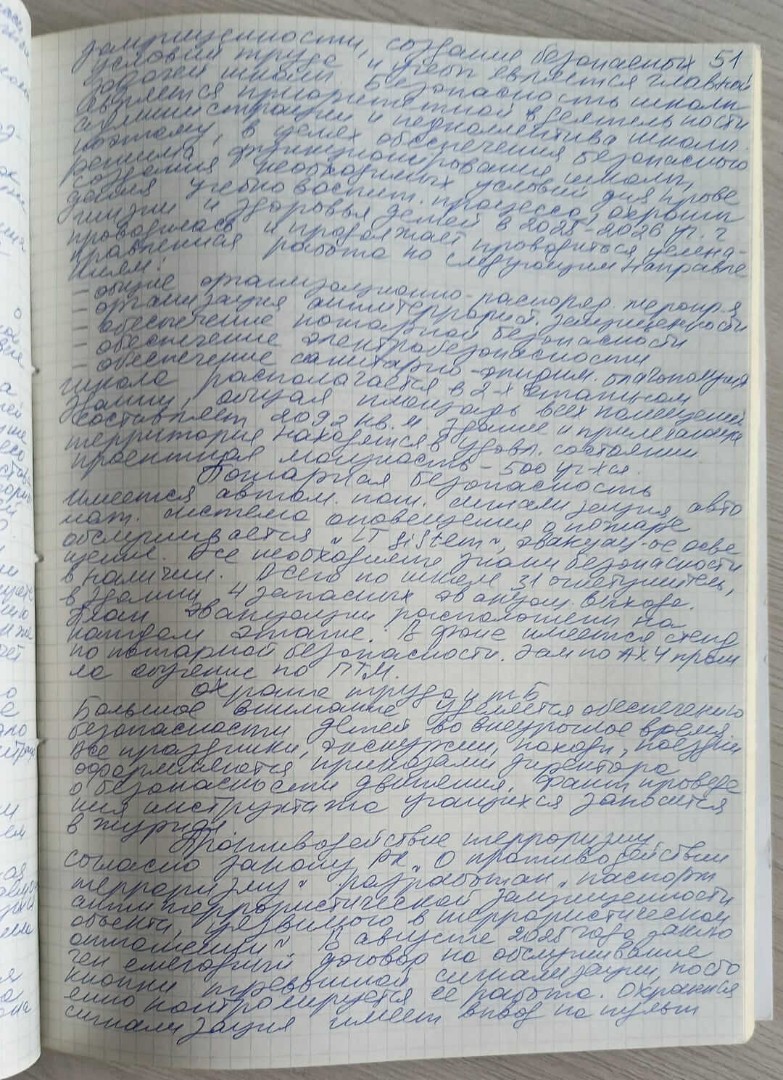 51
защищенности, создание безопасных
условий труда и учебы является главной
задачей школы. Безопасность школы
является приоритетной в деятельности
администрации и педколлектива школы.
Поэтому, в целях обеспечения безопасного
режима функционирования школы,
создания необходимых условий для прове
дения учебно воспит. процесса, охраны
жизни и здоровья детей в 2025-2026 уч. г
проводилась и продолжает проводиться целена-
правленная работа по следующим направле
ниям:
— общие организационно-распоряд. меропр-я
— организация антитеррорист. защищенности
— обеспечение пожарной безопасности
— обеспечение электробезопасности
— обеспечение санитарно-эпидем. благополучия
Школа располагается в 2-х этажном
здании, общая площадь всех помещений
составляет 2092 кв. м. Здание и прилехающая
территория находятся в удовл. состоянии
проектная мощность - 500 уч-хся.
Пожарная безопасность
Имеется автом. пож. сигнализация, авто
мат. система оповещения о пожаре
обслуживается "LT sistem", эвакуац-ое осве
щение. Все необходимые знаки безопасности
в наличии. Всего по школе 31 огнетушитель,
в здании 4 запасных эвакуац. выхода.
План эвакуации расположены на
каждом этаже. В фойе имеется стенд
по пожарной безопасности. Зам по АХЧ прош
ла обучение по ПТМ.
Охрана труда и тБ
Большое внимание уделяется обеспечению
безопасности детей во внеурочное время.
Все праздники, экскурсии, походы, поездки
оформляются приказами директора
о безопасности движения. Факт проведе
ния инструктажа учащихся заносится
в журнал.
Противодействие терроризму
Согласно закону РК „О противодействии
терроризму" разработан „паспорт
антитеррористической защищенности
объекта, уязвимого в террористическом
отношении". В августе 2025 года заклю
чен ежегодный договор на обслуживание
кнопки тревожной сигнализации, посто
янно контролируется ее работа. Охранная
сигнализация имеет вывод на пульт